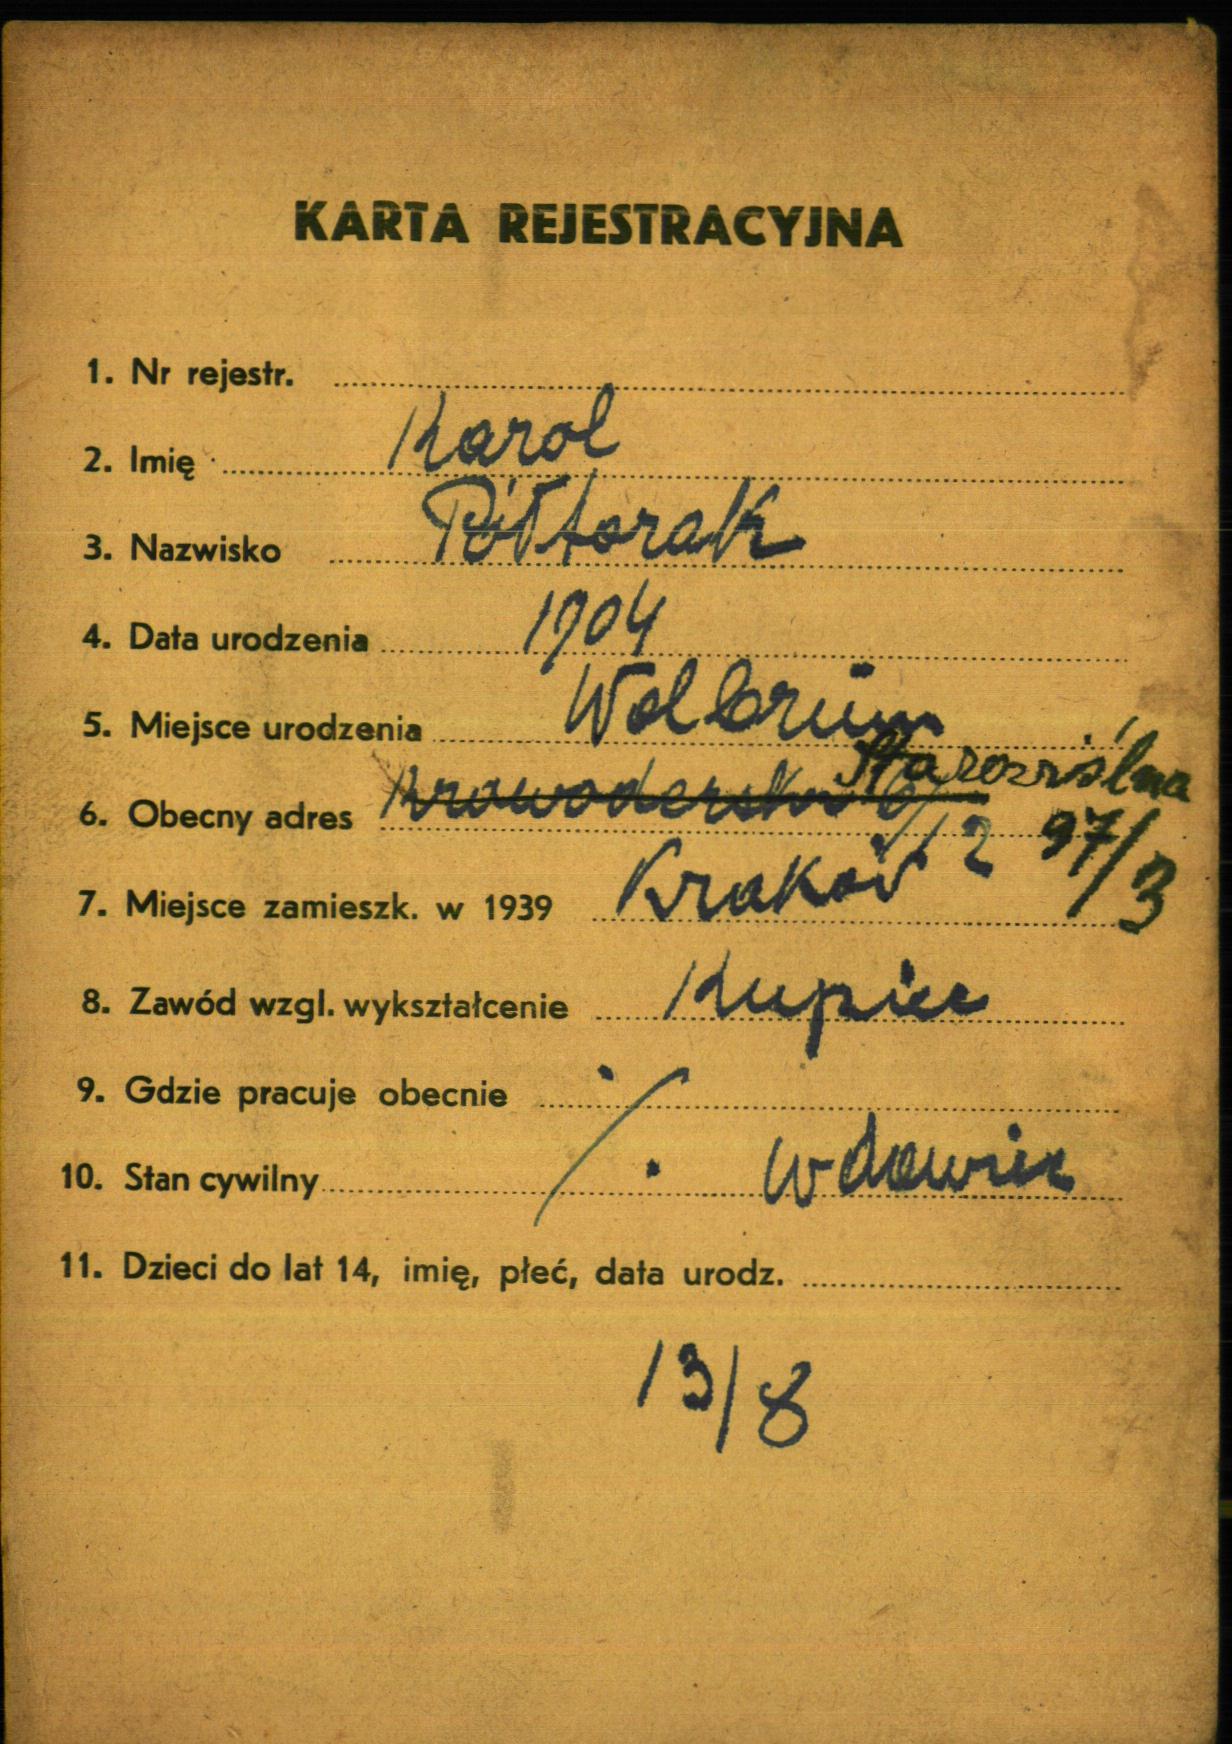 KARTA REJESTRACYJNA
1. Nr rejestr.
2. Imię Karol
3. Nazwisko Półtorak
4. Data urodzenia 1904
5. Miejsce urodzenia Wolbrum
6. Obecny adres Krowoderska Starowiślna
12 97/3
7. Miejsce zamieszk. w 1939 Kraków
8. Zawód wzgl. wykształcenie Kupiec
9. Gdzie pracuje obecnie ./.
10. Stan cywilny wdowiec
11. Dzieci do lat 14, imię, płeć, data urodz.
13/8